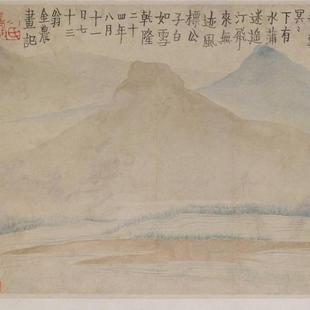 冥〻
下有
水蒲
迷遠
汀飛
來無
迹風
標公
子白
如雪
乾隆
二十
四年
八月
十一
日七
十三
翁
金農
畫記